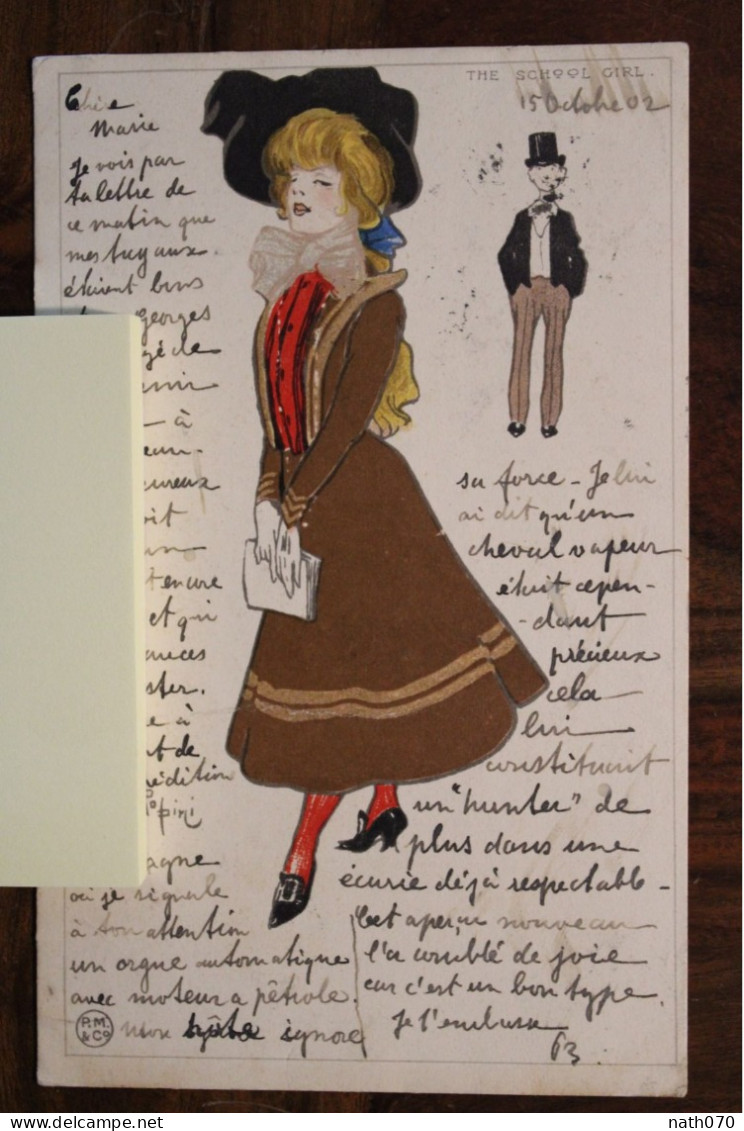 THE SCHOOL GIRL.
15 Octobre 02
Chère
Marie
Je vois par
ta lettre de
ce matin que
mes tuyaux
étaient bons
georges
de
à
eureux
encore
et qui
ances
à
de
édition
agne
où je signale
à ton attention
un orgue automatique
avec moteur a pétrole.
P.M. & Co
mon hôte ignore
sa force - Je lui
ai dit qu'un
cheval vapeur
était cepen-
-dant
précieux
cela
lui
constituait
un "hunter" de
plus dans une
écurie déjà respectable -
Cet aperçu nouveau
l'a comblé de joie
car c'est un bon type.
Je t'embrasse
nath070